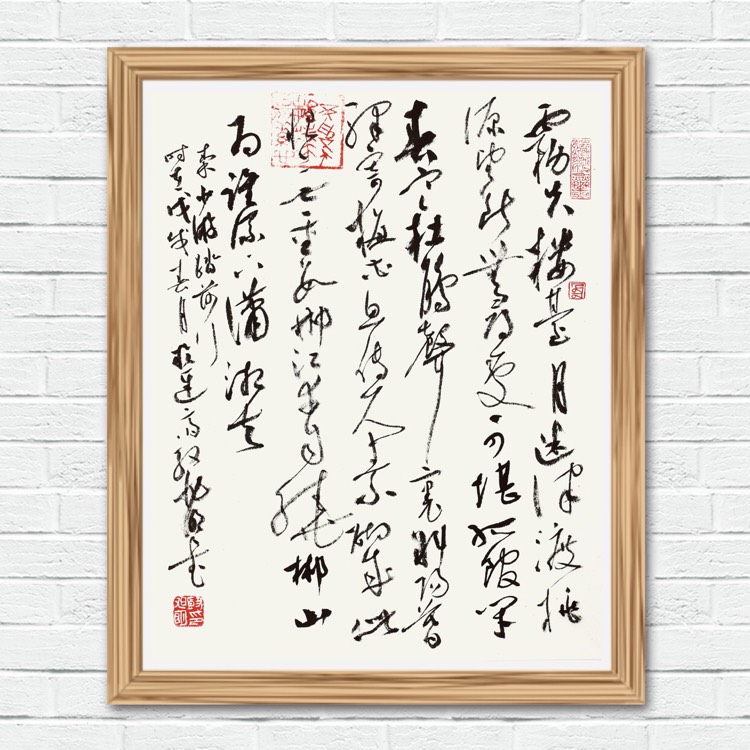 霧失樓臺月迷津渡桃
源望断無尋處可堪孤館閉
春寒杜鵑聲裏斜陽暮
驛寄梅花魚傳尺素砌成此
恨無重數郴江幸自繞郴山
为誰流下瀟湘去
秦少游踏莎行
時在戊戌春月